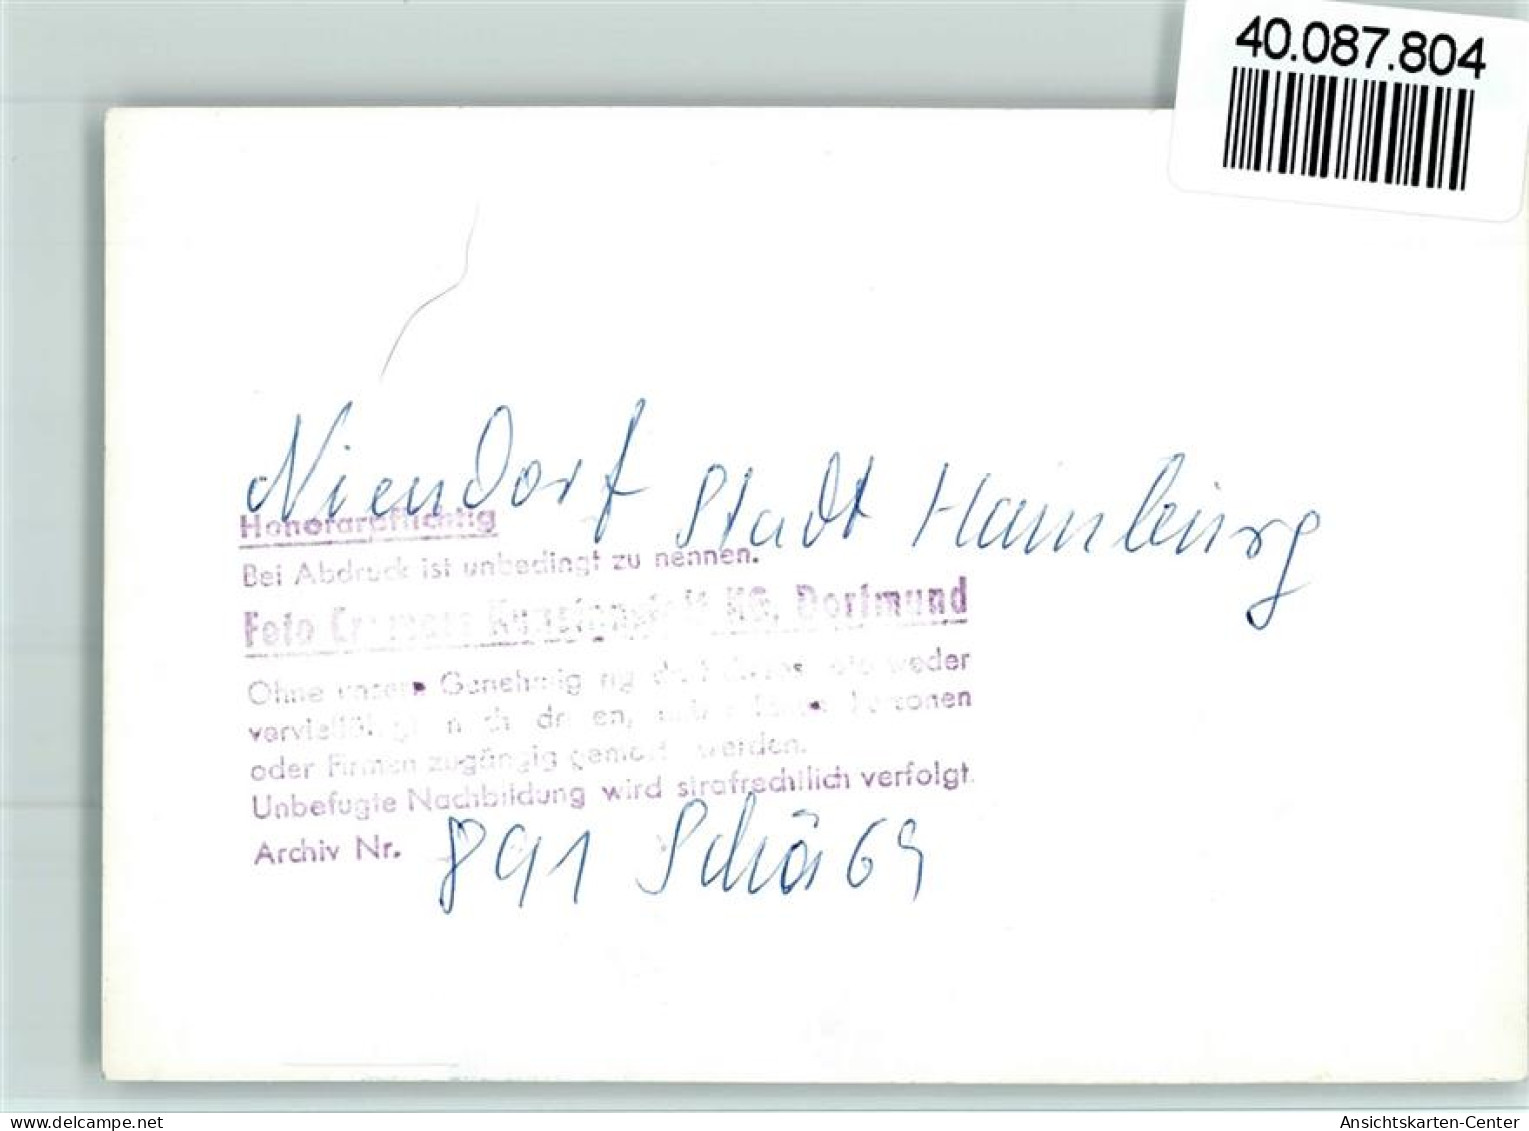 40.087.804
Niendorf Stadt Hamburg
Honorarpflichtig
Bei Abdruck ist unbedingt zu nennen.
Foto Cramers Kunstanstalt KG, Dortmund
Ohne unsere Genehmigung weder
Personen
oder Firmen zugängig gemacht werden.
Unbefugte Nachbildung wird strafrechtlich verfolgt.
Archiv Nr. 891 Schö 69
www.delcampe.net
Ansichtskarten-Center